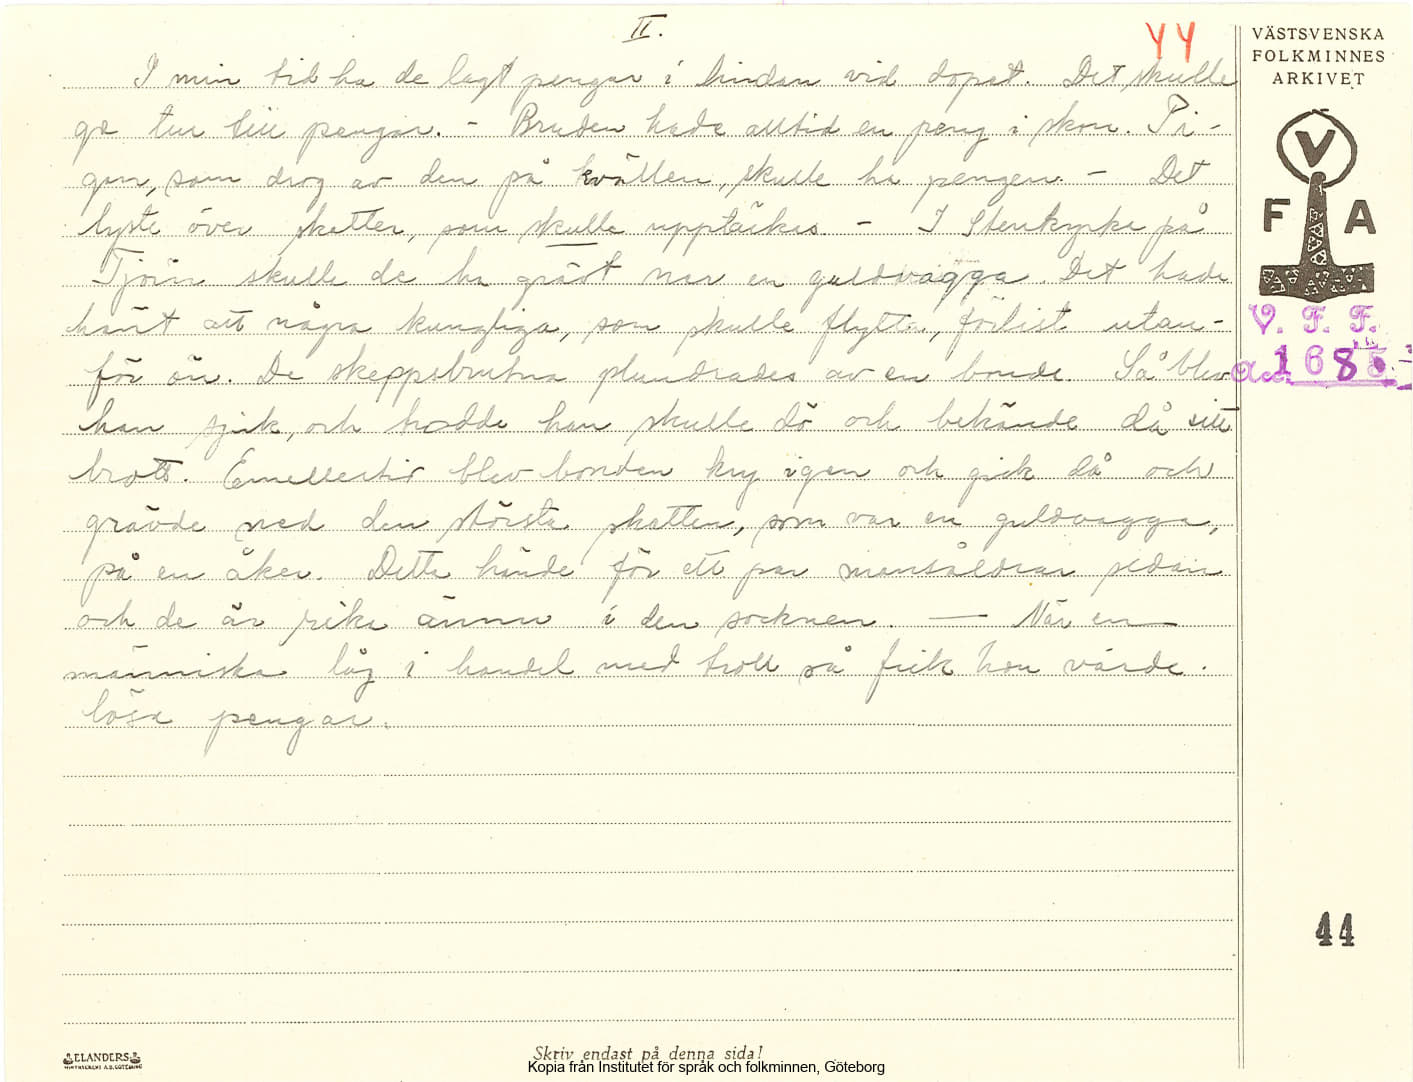 II.
44
I min tid ha de lagt pengar i lindan vid dopet. Det skulle
ge tur till pengar. - Bruden hade alltid en peng i skon. Pi-
gan, som drog av den på kvällen, skulle ha pengen. - Det
lyste över skatter, som skulle upptäckas - I Stenkyrka på
Tjörn skulle de ha grävt ner en guldvagga. Det hade
hänt att några kungliga, som skulle flytta, förlist utan-
för ön. De skeppsbrutna plundrades av en bonde. Så blev
han sjuk, och trodde han skulle dö och bekände då sitt
brott. Emellertid blev bonden kry igen och gick då och
grävde ned den största skatten, som var en guldvagga,
på en åker. Detta hände för ett par mansåldrar sedan
och de är rika ännu i den socknen. — När en
människa låg i handel med troll så fick hon värde-
lösa pengar.
VÄSTSVENSKA
FOLKMINNES
ARKIVET
V
F A
V. F. F.
Acc. 1685
44
ELANDERS
Skriv endast på denna sida!
Kopia från Institutet för språk och folkminnen, Göteborg